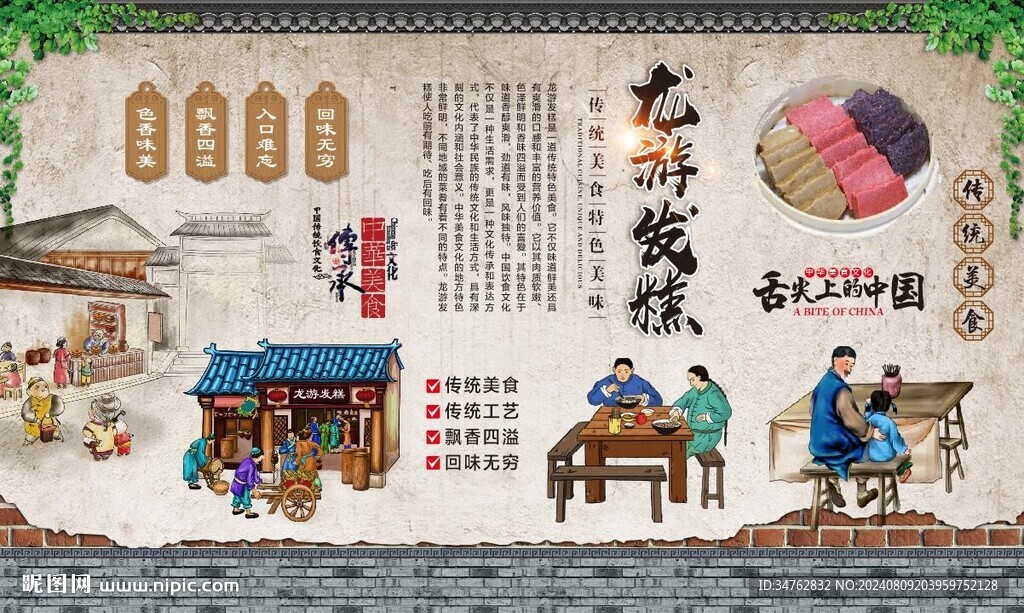 色香味美
飘香四溢
入口难忘
回味无穷
龙游发糕
传统美食特色美味
TRADITIONAL CUISINE, UNIQUE AND DELICIOUS
龙游发糕是一道传统特色美食。它不仅味道鲜美还具
有爽滑的口感和丰富的营养价值。它以其肉质软嫩、
色泽鲜明和香味四溢而受到人们的喜爱。其特色在于
味道香醇爽滑，劲道有味，风味独特。中国饮食文化
不仅是一种生活需求，更是一种文化传承和表达方
式，代表了中华民族的传统文化和生活方式，具有深
刻的文化内涵和社会意义。中华美食文化的地方特色
非常鲜明，不同地域的菜肴有着不同的特点。龙游发
糕使人吃前有期待、吃后有回味。
中国传统饮食文化
傳承
中華美食
文化
传统美食
中华美食文化
舌尖上的中国
A BITE OF CHINA
龙游发糕
传统美食
传统工艺
飘香四溢
回味无穷
昵图网 www.nipic.com
ID:34762832 NO:20240809203959752128